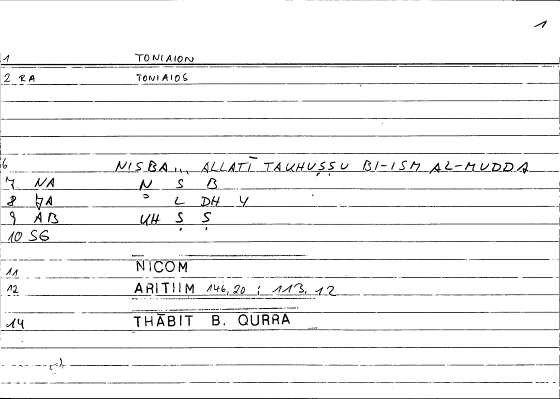 1
1 TONIAION
2 RA TONIAIOS
6 NISBA... ALLATĪ TAUHUṢṢU BI-ISM AL-MUDDA
7 NA N S B
8 JA ɔ L DH Y
9 AB UH Ṣ Ṣ
10 SG
11 NICOM
12 ARITIIM 146,20 ; 113,12
14 THĀBIT B. QURRA